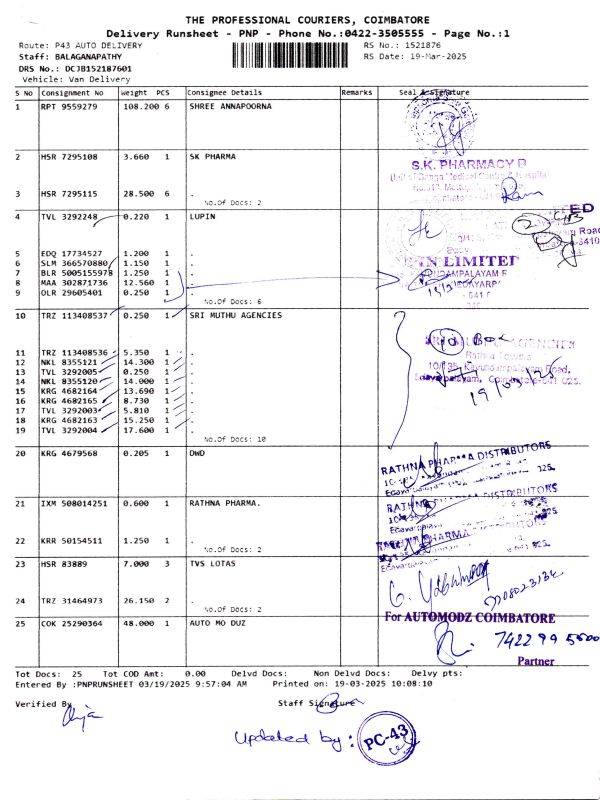 THE PROFESSIONAL COURIERS, COIMBATORE
Delivery Runsheet - PNP - Phone No.:0422-3505555 - Page No.:1
Route: P43 AUTO DELIVERY RS No.: 1521876
Staff: BALAGANAPATHY RS Date: 19-Mar-2025
DRS No.: DCJB152187601
Vehicle: Van Delivery
S No Consignment No Weight PCS Consignee Details Remarks Seal & Signature
1 RPT 9559279 108.200 6 SHREE ANNAPOORNA
2 HSR 7295108 3.660 1 SK PHARMA
S.K. PHARMACY
3 HSR 7295115 28.500 6 .
No.Of Docs: 2
4 TVL 3292248 0.220 1 LUPIN
5 EDQ 17734527 1.200 1 .
6 SLM 366570880 1.150 1 .
LIMITED
7 BLR 5005155978 1.250 1 .
8 MAA 302871736 12.560 1 .
9 OLR 29605401 0.250 1 .
No.Of Docs: 6
10 TRZ 113408537 0.250 1 SRI MUTHU AGENCIES
10 Box
11 TRZ 113408536 5.350 1 .
12 NKL 8355121 14.300 1 .
13 TVL 3292005 0.250 1 .
14 NKL 8355120 14.000 1 .
15 KRG 4682164 13.690 1 .
16 KRG 4682165 8.730 1 .
19/03/25
17 TVL 3292003 5.810 1 .
18 KRG 4682163 15.250 1 .
19 TVL 3292004 17.600 1 .
No.Of Docs: 10
20 KRG 4679568 0.205 1 DWD
RATHNA PHARMA DISTRIBUTORS
21 IXM 508014251 0.600 1 RATHNA PHARMA.
22 KRR 50154511 1.250 1 .
No.Of Docs: 2
23 HSR 83889 7.000 3 TVS LOTAS
24 TRZ 31464973 26.150 2 .
No.Of Docs: 2
For AUTOMODZ COIMBATORE
25 COK 25290364 48.000 1 AUTO MO DUZ
Partner
Tot Docs: 25 Tot COD Amt: 0.00 Delvd Docs: Non Delvd Docs: Delvy pts:
Entered By :PNPRUNSHEET 03/19/2025 9:57:04 AM Printed on: 19-03-2025 10:08:10
Verified By Staff Signature
Updated by: PC-43